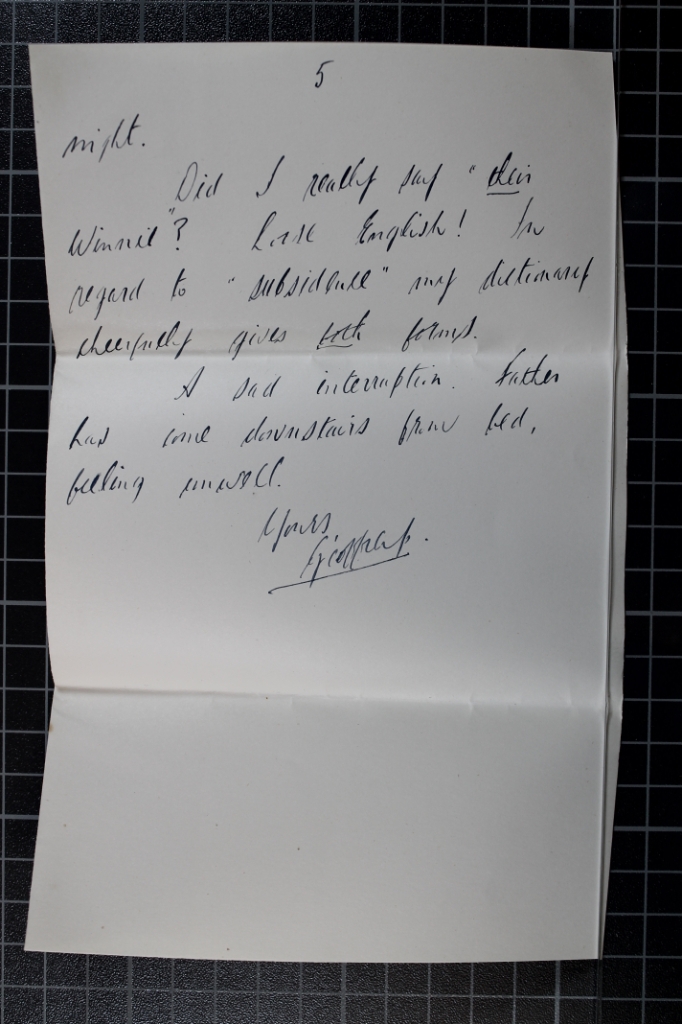 5
night.
Did I really say "their
Winnie"? Loose English! In
regard to "subsidence" my dictionary
cheerfully gives both forms.
A sad interruption. Father
has come downstairs from bed,
feeling unwell.
Yours,
Geoffrey.